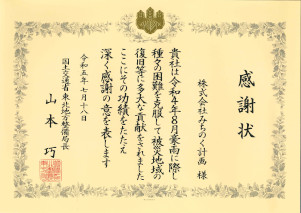 感謝状
株式会社みちのく計画 様
貴社は令和4年8月豪雨に際し
種々の困難を克服して被災地域の
復旧等に多大な貢献をされました
ここにその功績をたたえ
深く感謝の意を表します
令和五年七月十八日
国土交通省東北地方整備局長
山本 巧